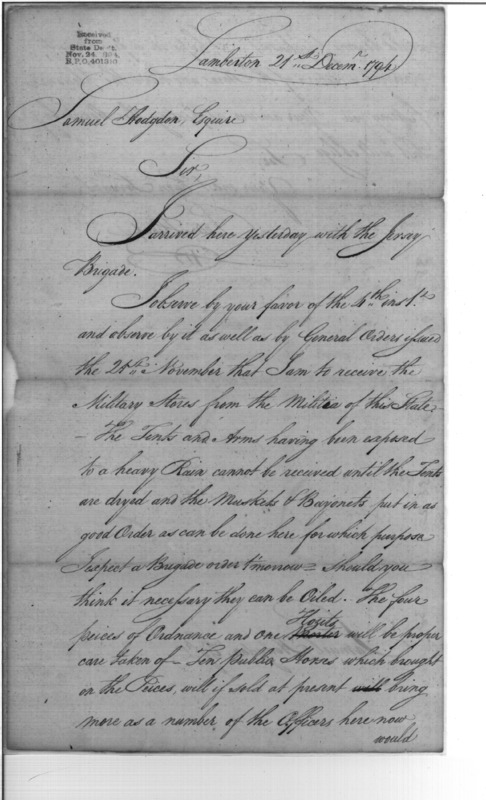 Received
from
State Dept.
Lamberton 21st Decemr. 1794
Samuel Hodgdon, Esquire
Sir,
I arrived here yesterday with the Jersey
Brigade.
I observe by your favor of the 4th inst.
and observe by it as well as by General Orders issued
the 21st November that I am to receive the
Military Stores from the Militia of this State
– The Tents and Arms having been exposed
to a heavy Rain cannot be received until the Tents
are dryed and the Muskets & Bayonets put in as
good Order as can be done here for which purpose
I expect a Brigade order tmorrow – Should you
think it necessary they can be Oiled. The four
peices of Ordnance and one Howitz will be proper
care taken of – Ten Public Horses which brought
on the Peices, will if sold at present will bring
more as a number of the Officers here now
would